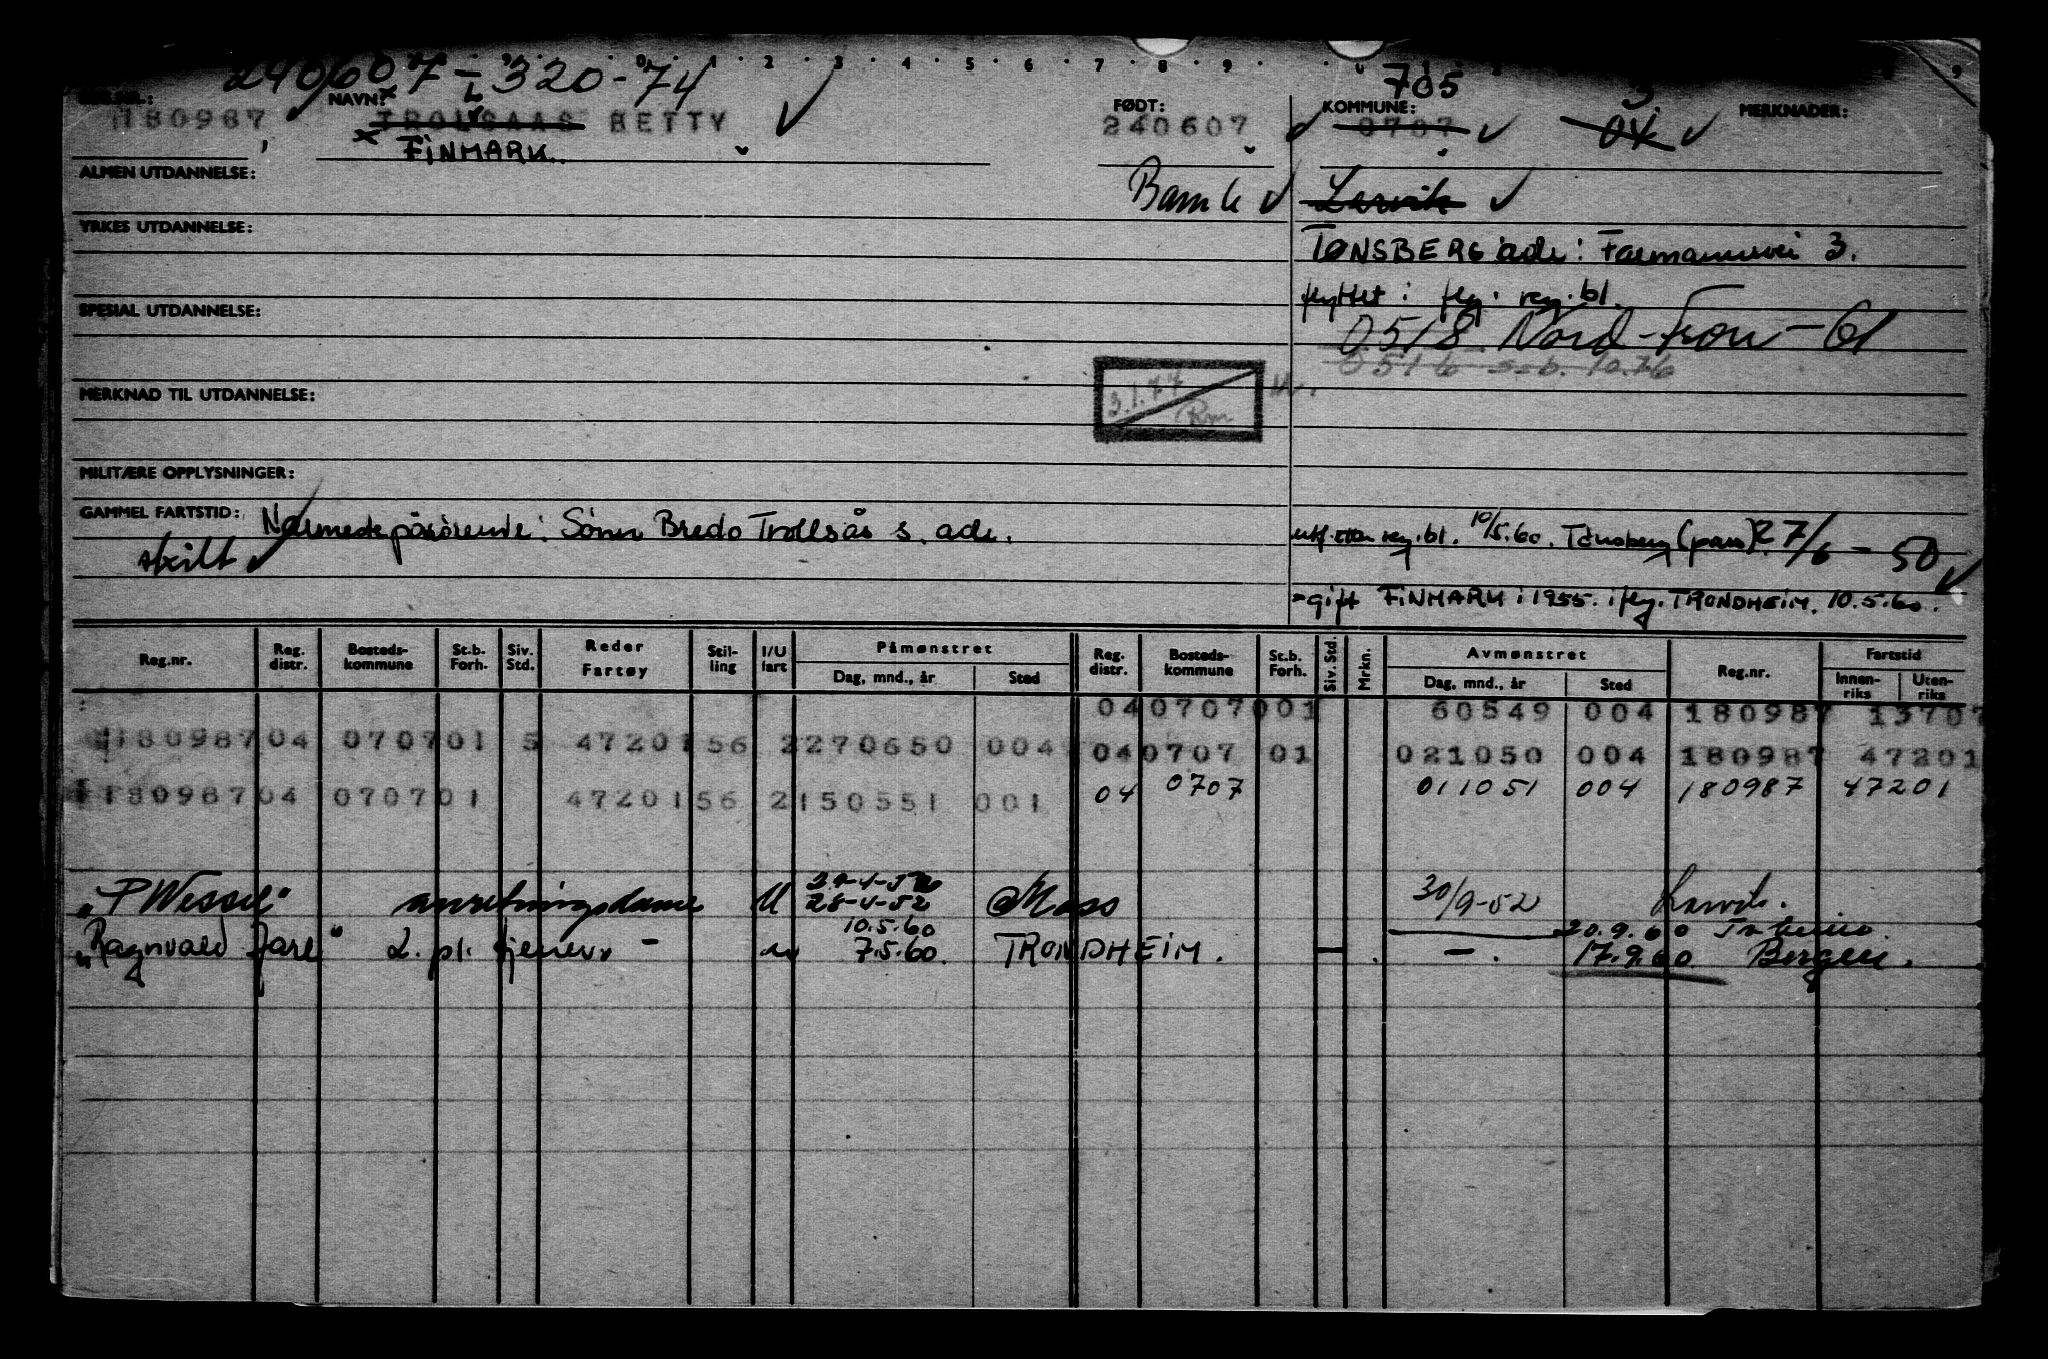 240607-320-74
705
NAVN:
FØDT:
KOMMUNE:
MERKNADER:
180987
TROLSAAS BETTY
240607
0707
04
3
FINMARK.
ALMEN UTDANNELSE:
Bamle
Larvik
YRKES UTDANNELSE:
TØNSBERG adr: Farmannsvei 3.
flyttet i flg. reg.bl.
SPESIAL UTDANNELSE:
0518 Nord-Fron - 61
0516 s.b. 10.76
3.1.77
Rm
MERKNAD TIL UTDANNELSE:
MILITÆRE OPPLYSNINGER:
GAMMEL FARTSTID:
Nærmeste pårørende: Sønn Bredo Trollsås s. adr.
skilt
utf. reg.bl. 10/5.60. Tønsberg (pass) 27/6 - 50
=gift FINMARK i 1955. iflg. TRONDHEIM. 10.5.60.
Reg.nr. Reg. distr. Bosteds-kommune St.b. Forh. Siv. Std. Reder Fartøy Stil-ling I/U fart Påmønstret Dag, mnd., år Sted Reg. distr. Bosteds-kommune St.b. Forh. Siv. Std. Mrkn. Avmønstret Dag, mnd., år Sted Reg.nr. Fartstid Innen-riks Uten-riks
04 0707 001 60549 004 180987 13707
180987 04 0707 01 5 47201 56 2 270650 004 04 0707 01 021050 004 180987 47201
180987 04 0707 01 47201 56 2 150551 001 04 0707 011051 004 180987 47201
"P Wessel" anretningsdame U 28-4-52 Moss 30/9-52 Larvik.
10.5.60 20.9.60
"Ragnvald Jarl" 2. pl. 7.5.60. TRONDHEIM. - . - . 17.9.60 Bergen.